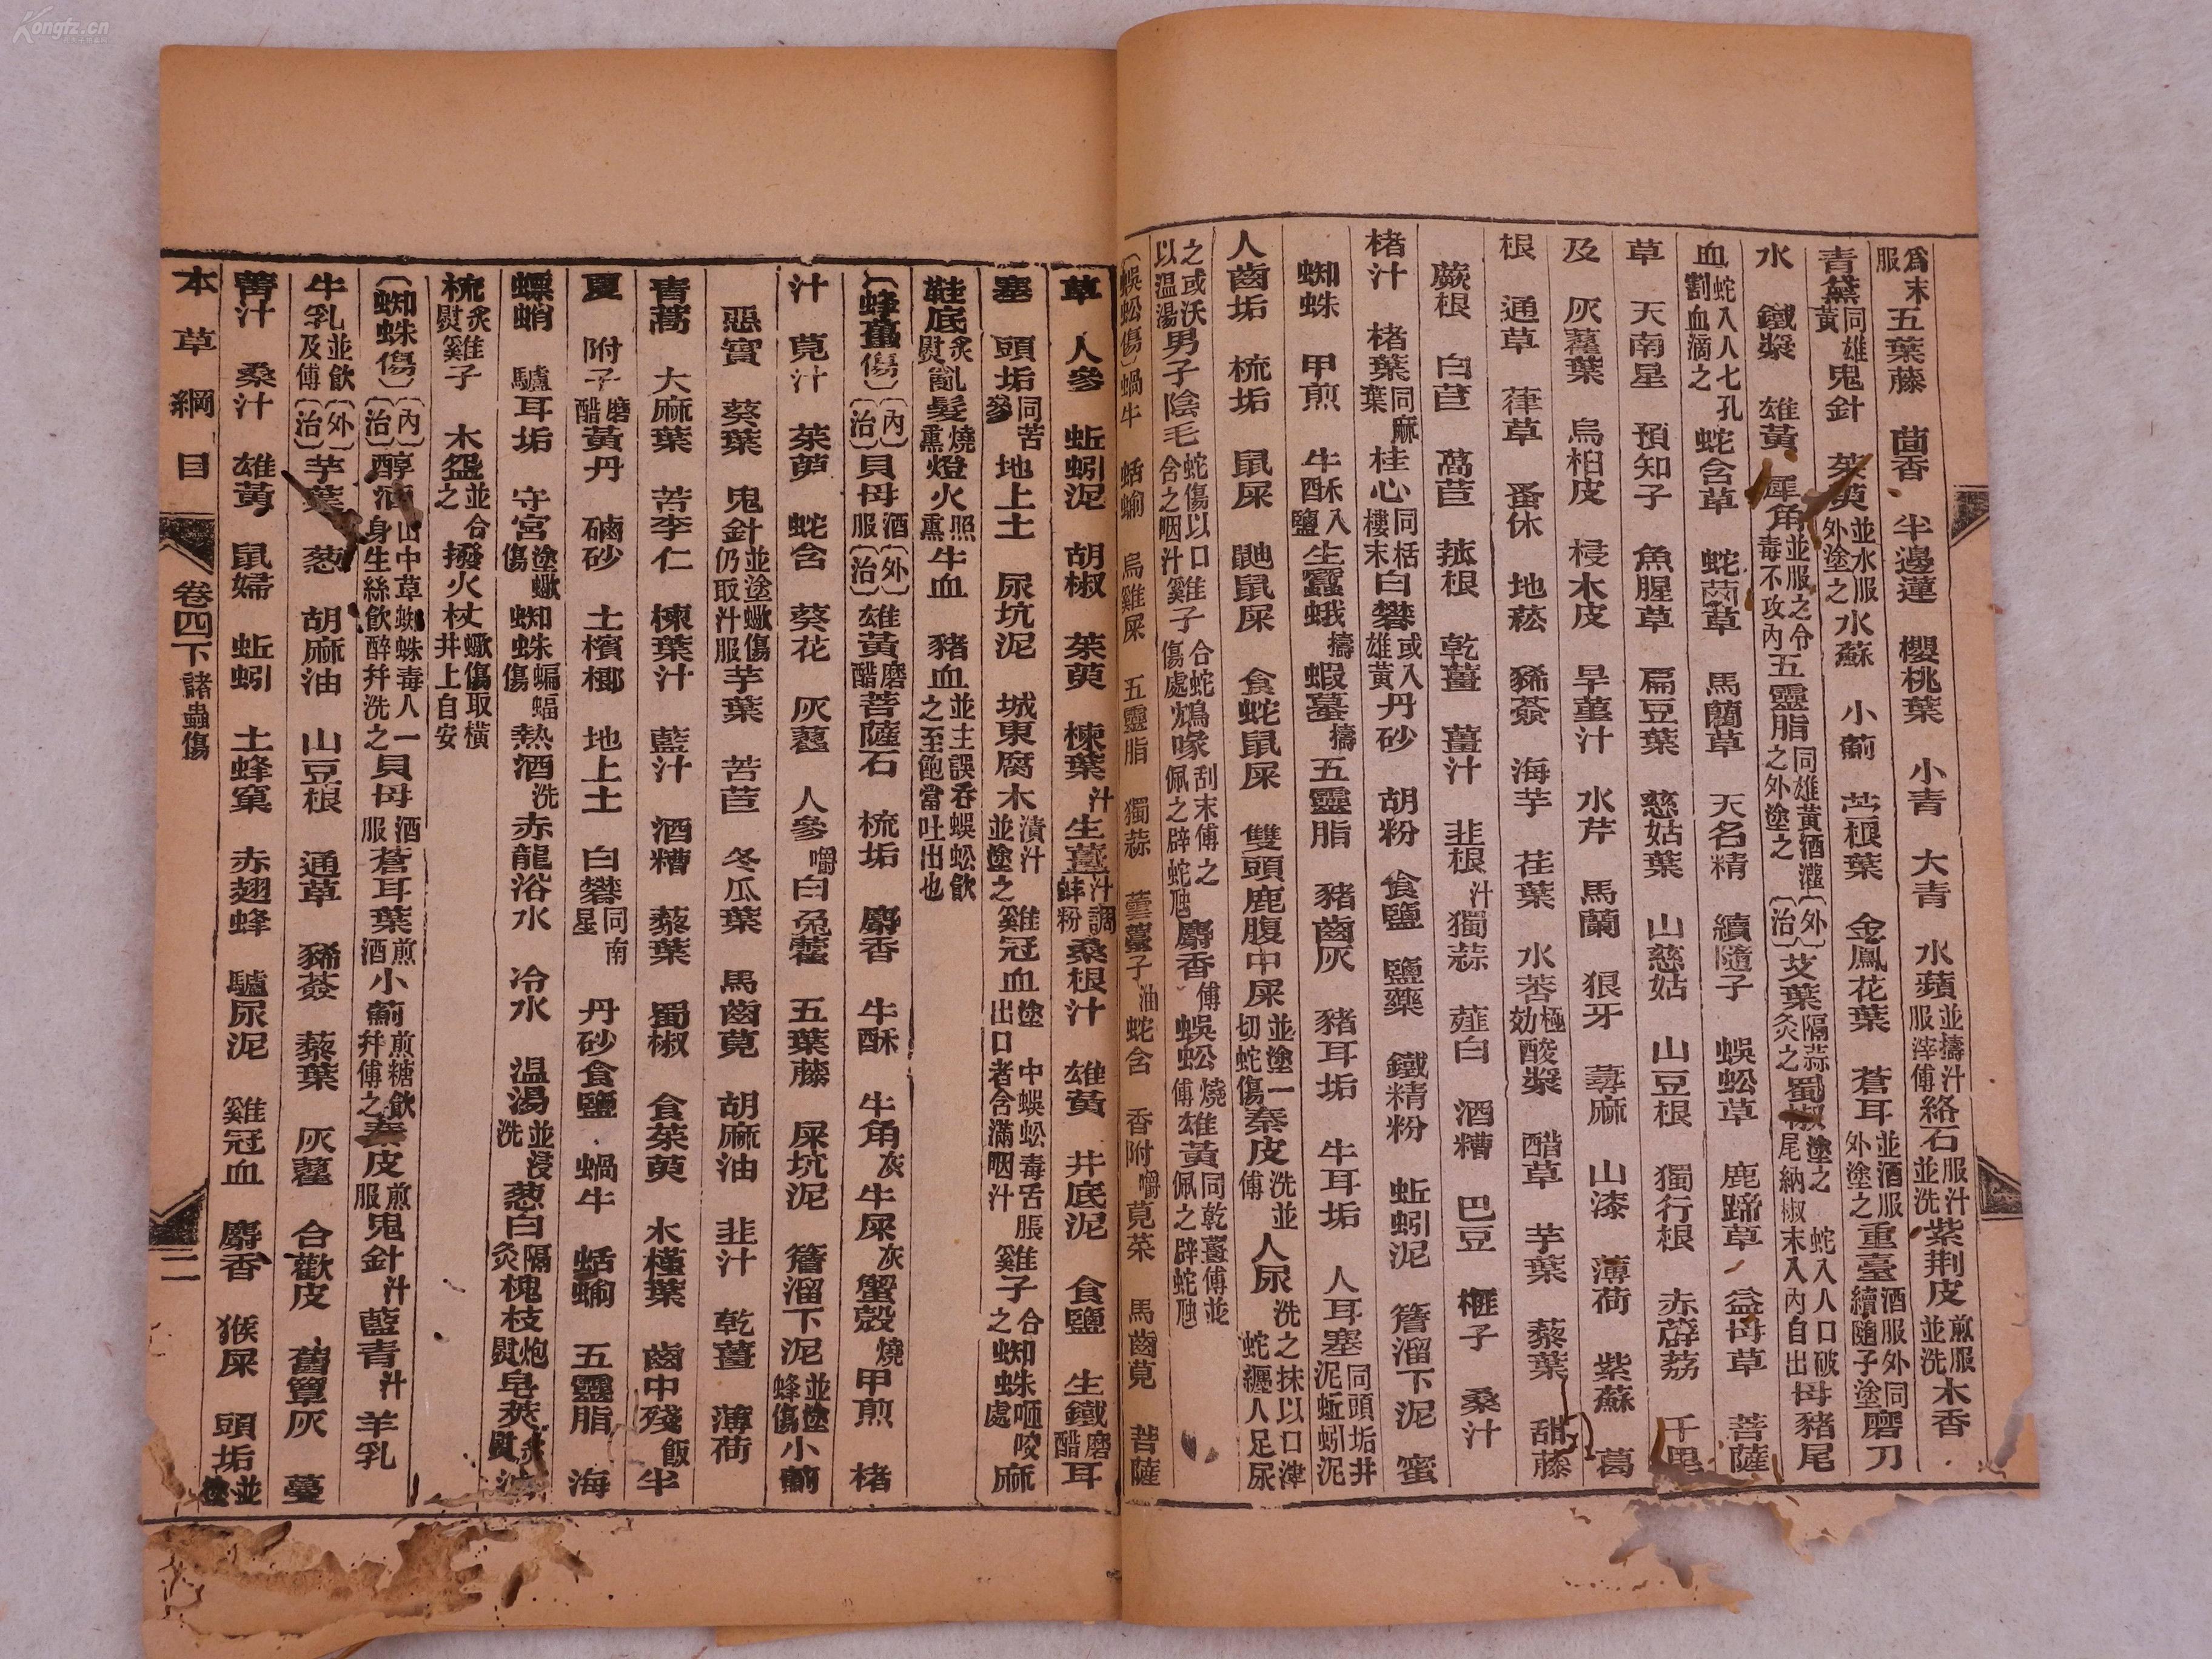 為末服五葉藤 茴香 半邊蓮 櫻桃葉 小青 大青 水蘋並擣汁服滓傅絡石服汁並洗紫荆皮煎服並洗木香
青黛同雄黃鬼針 茱萸並水服外塗之水蘇 小薊 苧根葉 金鳳花葉 蒼耳並酒服外塗之重臺酒服外同續隨子塗磨刀
水 鐵漿 雄黃 犀角並服之令毒不攻內五靈脂同雄黃酒灌之外塗之〔外治〕艾葉隔蒜灸之蜀椒塗之蛇入人口破尾納椒末入內自出母豬尾
血蛇入人七孔割血滴之蛇含草 蛇䓖草 馬藺草 天名精 續隨子 蜈蚣草 鹿蹄草 益母草 菩薩
草 天南星 預知子 魚腥草 扁豆葉 慈姑葉 山慈姑 山豆根 獨行根 赤薜荔 千里
及 灰藋葉 烏桕皮 梫木皮 旱菫汁 水芹 馬蘭 狼牙 蕁麻 山漆 薄荷 紫蘇 葛
根 通草 葎草 蚤休 地菘 豨薟 海芋 荏葉 水荖極効酸漿 醋草 芋葉 藜葉 甜藤
蕨根 白苣 萵苣 菰根 乾薑 薑汁 韭根汁獨蒜 薤白 酒糟 巴豆 榧子 桑汁
楮汁 楮葉同麻葉桂心同栝樓末白礬或入雄黃丹砂 胡粉 食鹽 鹽藥 鐵精粉 蚯蚓泥 簷溜下泥 蜜
蜘蛛 甲煎 牛酥入鹽生蠶蛾擣蝦蟇擣五靈脂 豬齒灰 豬耳垢 牛耳垢 人耳塞同頭垢井泥蚯蚓泥
人齒垢 梳垢 鼠屎 鼬鼠屎 食蛇鼠屎 雙頭鹿腹中屎並塗一切蛇傷秦皮洗並傅人尿洗之抹以口津蛇纏人足尿
之或沃以温湯男子陰毛蛇傷以口含之咽汁雞子合蛇傷處鴆喙刮末傅之佩之辟蛇虺麝香傅蜈蚣燒傅雄黃同乾薑傅並佩之辟蛇虺
〔蜈蚣傷〕蝸牛 蛞蝓 烏雞屎 五靈脂 獨蒜 蕓薹子油蛇含 香附嚼莧菜 馬齒莧 菩薩
草 人參 蚯蚓泥 胡椒 茱萸 楝葉汁生薑汁調蚌粉桑根汁 雄黃 井底泥 食鹽 生鐵磨醋耳
塞 頭垢同苦參地上土 尿坑泥 城東腐木漬汁並塗之雞冠血塗中蜈蚣毒舌脹出口者含滿咽汁雞子合之蜘蛛咂咬處麻
鞋底炙熨亂髮燒熏燈火照熏牛血 豬血並主誤吞蜈蚣飲之至飽當吐出也
〔蜂蠆傷〕〔內治〕貝母酒服〔外治〕雄黃磨醋菩薩石 梳垢 麝香 牛酥 牛角灰牛屎灰蟹殼燒甲煎 楮
汁 莧汁 茱萸 蛇含 葵花 灰藋 人參嚼白兔藿 五葉藤 屎坑泥 簷溜下泥並塗蜂傷小薊
惡實 葵葉 鬼針並塗蠍傷仍取汁服芋葉 苦苣 冬瓜葉 馬齒莧 胡麻油 韭汁 乾薑 薄荷
青蒿 大麻葉 苦李仁 楝葉汁 藍汁 酒糟 藜葉 蜀椒 食茱萸 木槿葉 齒中殘飯半
夏 附子磨醋黃丹 硇砂 土檳榔 地上土 白礬同南星丹砂食鹽 蝸牛 蛞蝓 五靈脂 海
螵蛸 驢耳垢 守宮塗蠍傷蜘蛛蝙蝠傷熱酒洗赤龍浴水 冷水 温湯並浸洗葱白隔灸槐枝炮熨皂莢炙熨油
梳炙熨雞子 木盌並合之撥火杖蠍傷取橫井上自安
〔蜘蛛傷〕〔內治〕醇酒山中草蜘蛛毒人一身生絲飲醉幷洗之貝母酒服蒼耳葉煎酒小薊煎糖飲幷傅之秦皮煎服鬼針汁藍青汁羊乳
牛乳並飲及傅〔外治〕芋葉 葱 胡麻油 山豆根 通草 豨薟 藜葉 灰藋 合歡皮 舊簟灰 蔓
菁汁 桑汁 雄黃 鼠婦 蚯蚓 土蜂窠 赤翅蜂 驢尿泥 雞冠血 麝香 猴屎 頭垢並塗
本草綱目 卷四下 諸蟲傷 二
Kongfz.cn